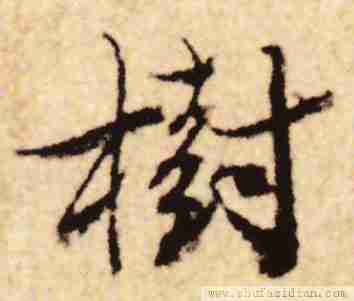 樹
www.shufazidian.com